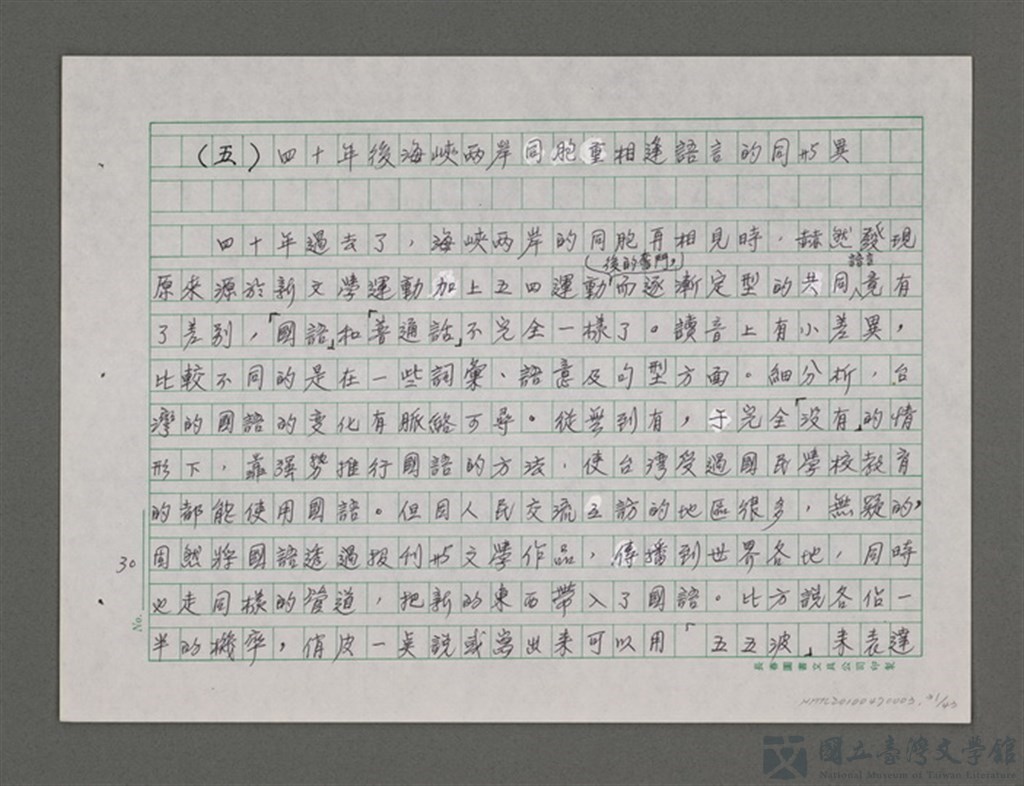 （五）四十年後海峽兩岸同胞重相逢語言的同與異
四十年過去了，海峽兩岸的同胞再相見時，赫然發現
後的奮鬥，
語言
原來源於新文學運動加上五四運動而逐漸定型的共同竟有
了差別，「國語」和「普通話」不完全一樣了。讀音上有小差異，
比較不同的是在一些詞彙、語意及句型方面。細分析，台
灣的國語的变化有脈絡可尋。從無到有，于完全「没有」的情
形下，靠强勢推行國語的方法，使台湾受過國民學校教育
的都能使用國語。但因人民交流互訪的地區很多，無疑的，
固然将國語透過报刊與文學作品，傳播到世界各地，同時
也走同樣的管道，把新的東西帶入了國語。比方說各佔一
半的機率，俏皮一点說或寫出来可以用「五五波」来表達
30
No.
長春圖書文具公司印製
NMTL20100470003.31/43
國立臺灣文學館
National Museum of Taiwan Literature